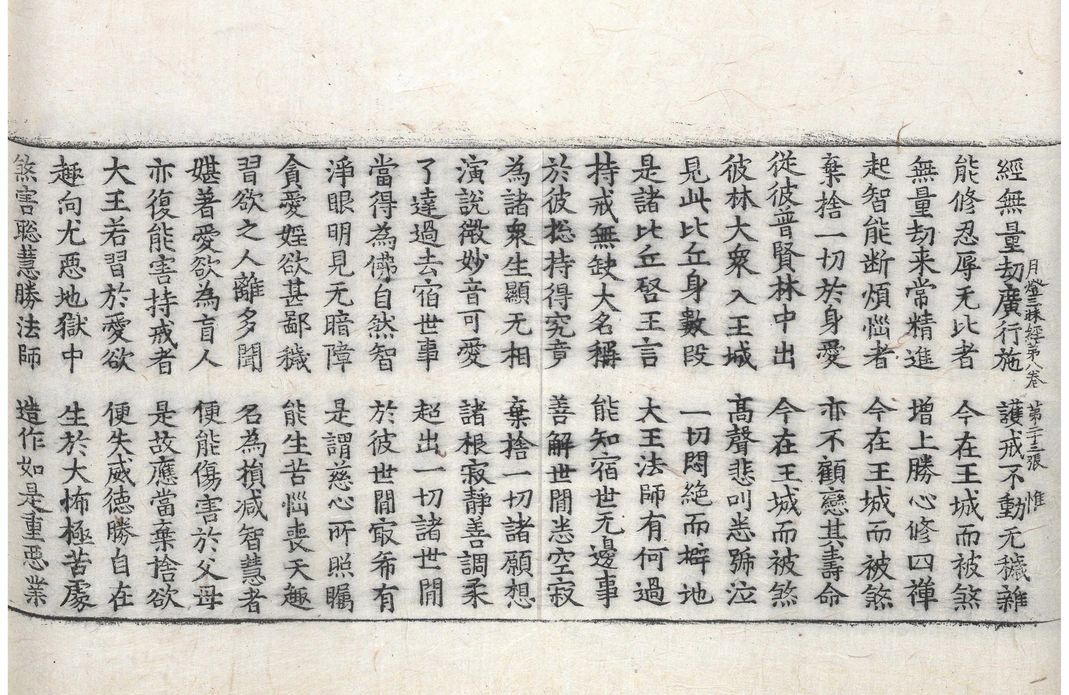 月燈三昧經第八卷 第二十三張 惟
經無量劫廣行施 護戒不動无穢雜
能修忍辱无比者 今在王城而被煞
無量劫来常精進 增上勝心修四禪
起智能断煩惱者 今在王城而被煞
棄捨一切於身愛 亦不顧戀其壽命
從彼普賢林中出 今在王城而被煞
彼林大衆入王城 髙聲悲叫悉號泣
見此比丘身數段 一切悶絶而擗地
是諸比丘啓王言 大王法師有何過
持戒無缺大名稱 能知宿世无邊事
於彼捴持得究竟 善解世間悉空寂
為諸衆生顯无相 棄捨一切諸願想
演說微妙音可愛 諸根寂靜善調柔
了達過去宿世事 超出一切諸世間
當得為佛自然智 於彼世間㝡希有
淨眼明見无暗障 是謂慈心所照矚
貪愛婬欲甚鄙穢 能生苦惱喪天趣
習欲之人離多聞 名為損減智慧者
媅著愛欲為盲人 便能傷害於父母
亦復能害持戒者 是故應當棄捨欲
大王若習於愛欲 便失威德勝自在
趣向尤惡地獄中 生於大怖極苦處
煞害聡慧勝法師 造作如是重惡業